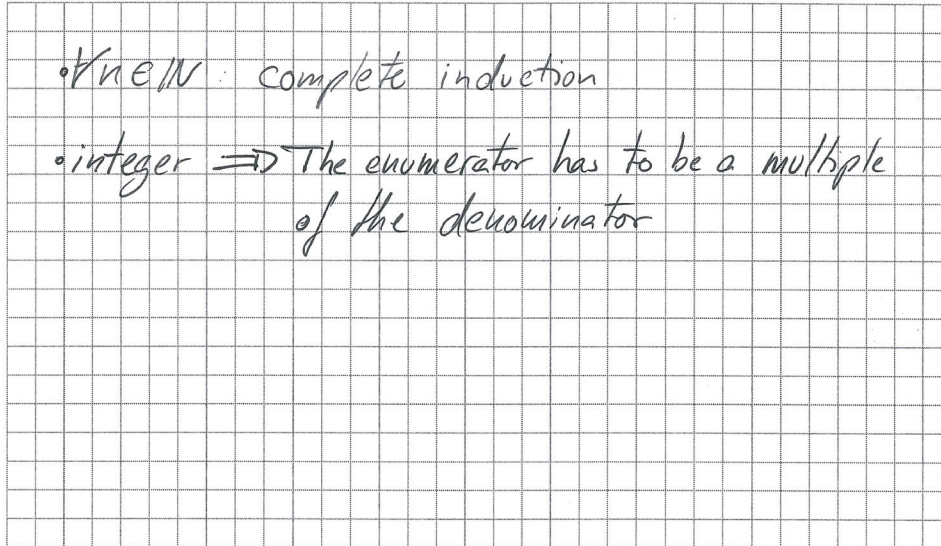 • ∀n∈ℕ: complete induction
• integer ⇒ The enumerator has to be a multiple
of the denominator